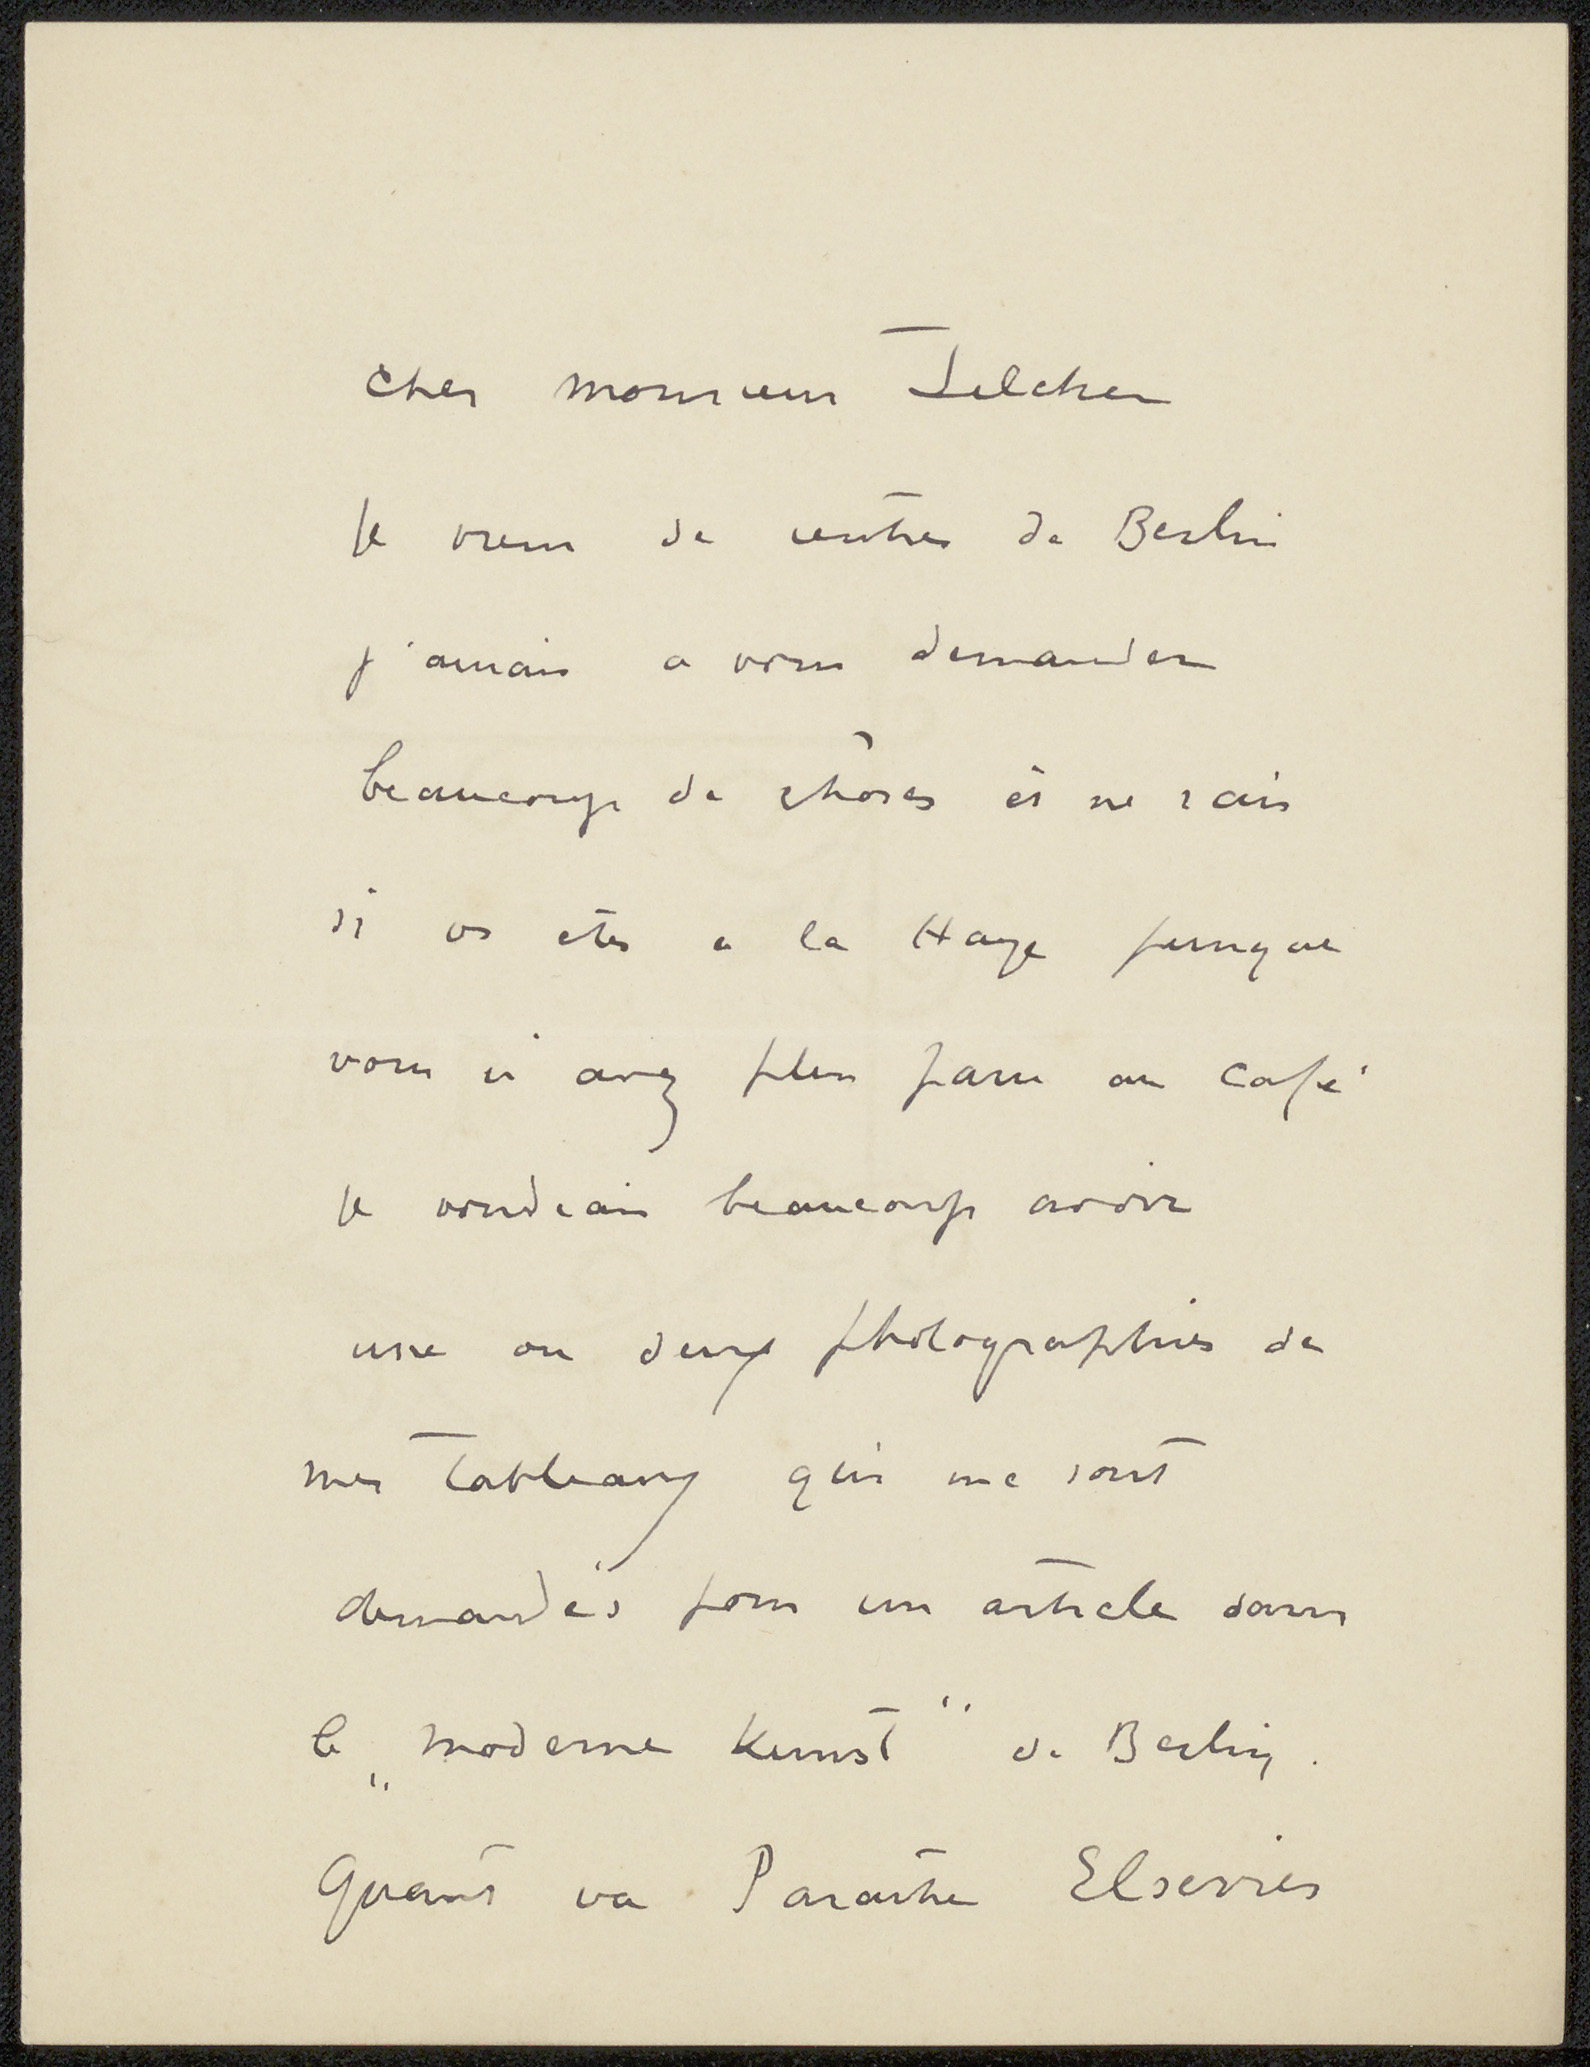 cher monsieur Zilcken
je viens de rentrer de Berlin
j'aurais a vous demander
beaucoup de choses et ne sais
si vs etes a la Haye puisque
vous n'avez plus paru au café
je voudrais beaucoup avoir
une ou deux photographies de
mes tableaux qui me sont
demandés pour un article dans
le „moderne Kunst" de Berlin.
Quant va Paraitre Elsevier